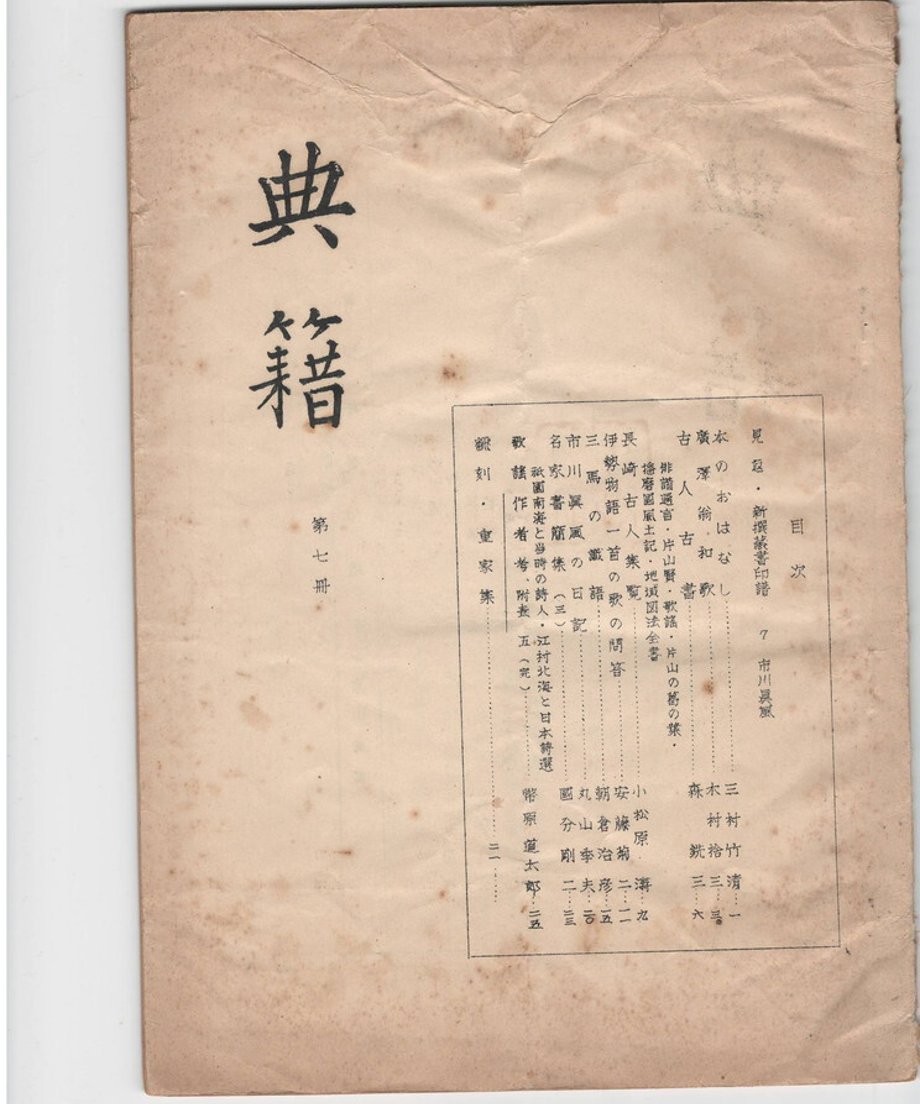 典籍
第七冊
目次
見返・新撰蔵書印譜 7 市川眞風
本のおはなし 三村竹清 一
廣澤翁和歌 木村捨三 三
古人古書 森銑三 六
俳諧通言・片山賢・歌謠・片山の葛の葉・
播磨國風土記・地域図法全書
長崎古人集覧 小松原濤 九
伊勢物語一首の歌の問答 安藤菊二 一一
三馬の讖語 朝倉治彦 一五
市川眞風の日記 丸山季夫 二〇
名家書簡集(三) 國分剛二 二三
祇園南海と当時の詩人・江村北海と日本詩選
歌謠作者考、附表 五(完) 幣原道太郎 二五
飜刻・重家集 二一